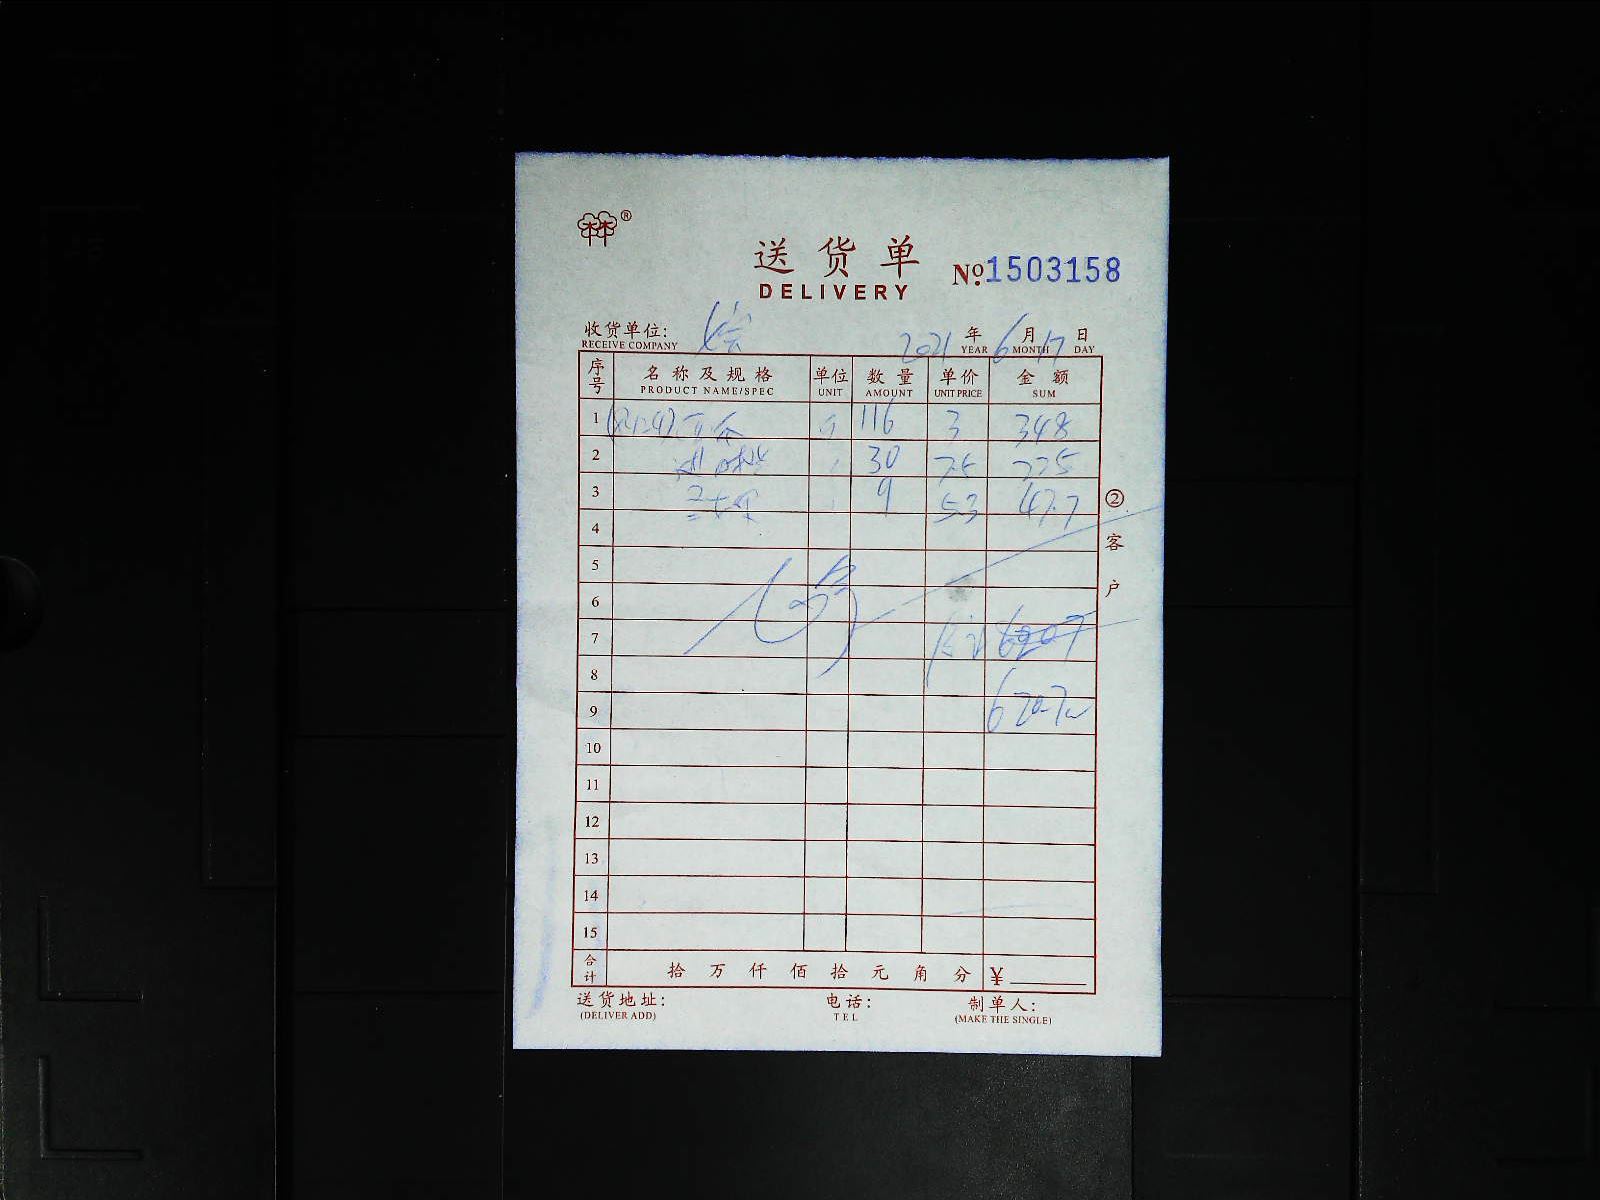 ®
送货单
DELIVERY
No.1503158
收货单位:
RECEIVE COMPANY
2021 年 6 月 17 日
YEAR MONTH DAY
序号 名称及规格 单位 数量 单价 金额
PRODUCT NAME/SPEC UNIT AMOUNT UNIT PRICE SUM
1 116 3 348
2 30 7.5 225
3 9 5.3 47.7
4
5
6
7 620.7
8
9 620.7
10
11
12
13
14
15
合计 拾 万 仟 佰 拾 元 角 分 ¥
② 客户
送货地址: 电话: 制单人:
(DELIVER ADD) TEL (MAKE THE SINGLE)